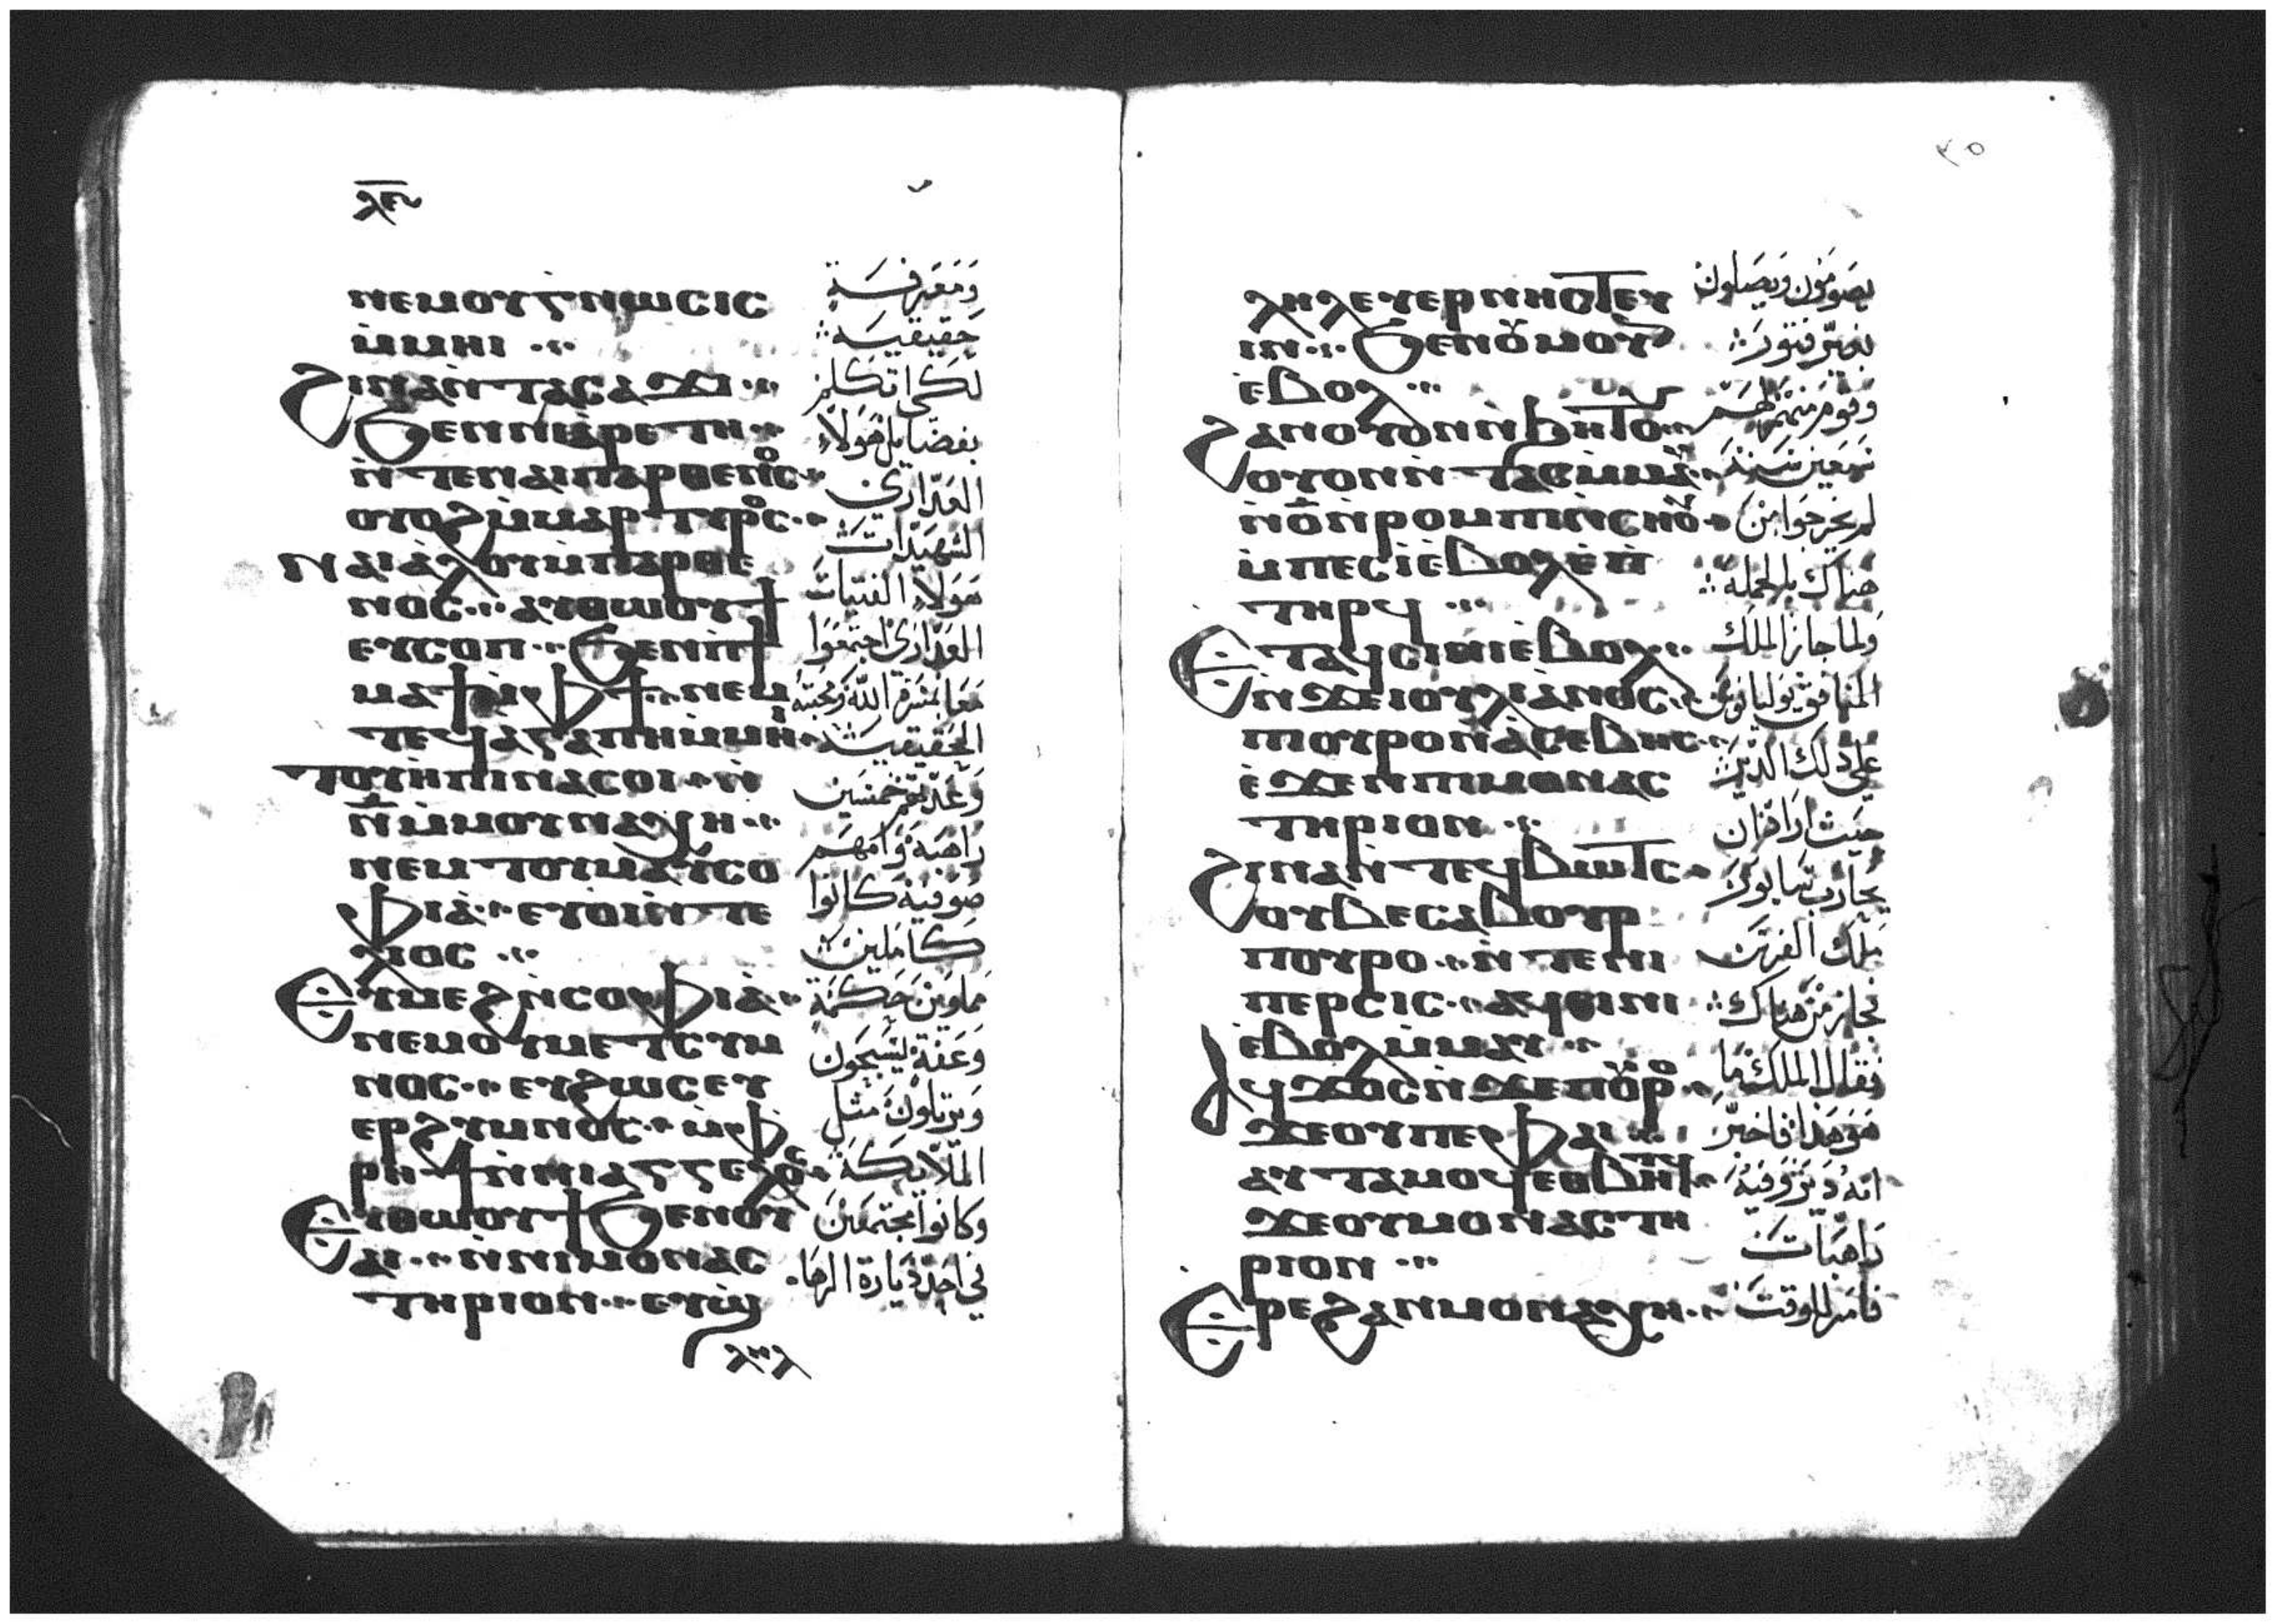 ⲗⲉ
ⲛⲉⲙⲟⲩⲅⲛⲱⲥⲓⲥ
ⲙ̀ⲙⲏⲓ
ϩⲓⲛⲁⲛ̀ⲧⲁⲥⲁϫⲓ
ϧⲉⲛⲛⲓⲁ̀ⲣⲉⲧⲏ
ⲛ̀ⲧⲉⲛⲁⲓⲡⲁⲣⲑⲉⲛⲟⲥ
ⲟⲩⲟϩⲙ̀ⲙⲁⲣⲧⲩⲣⲟⲥ
ⲛⲁⲓⲁ̀ⲗⲟⲩⲙ̀ⲡⲁⲣⲑⲉ
ⲛⲟⲥ ⲁⲩⲑⲱⲟⲩϯ
ⲉⲩⲥⲟⲡ ϧⲉⲛⲡϯ
ⲙⲁϯⲙ̀ⲫϯ ⲛⲉⲙ
ⲧⲉϥⲁⲅⲁⲡⲏⲙ̀ⲙⲏⲓ
ⲧⲟⲩⲏⲡⲓⲛⲁⲥⲟⲓ ⲛ̀
ⲛ̅ⲙ̀ⲙⲟⲩⲛⲁⲭⲏ
ⲛⲉⲙⲧⲟⲩⲙⲁⲩⲥⲟ
ⲫⲓⲁ̀ ⲉⲩⲟⲓⲛ̀ⲧⲉ
ⲗⲓⲟⲥ
ⲉⲩⲙⲉϩⲛ̀ⲥⲟⲫⲓⲁ̀
ⲛⲉⲙⲟⲩⲙⲉⲧⲥⲩⲙ
ⲛⲟⲥ ⲉⲩϩⲱⲥⲉⲩ
ⲉⲣϩⲩⲙⲛⲟⲥ ⲙ̀ⲫ
ⲣⲏϯⲛ̀ⲛⲓⲁⲅⲅⲉⲗⲟⲥ
ⲉⲩⲑⲱⲟⲩϯϧⲉⲛⲟⲩ
ⲁⲓ ⲛ̀ⲛⲓⲙⲟⲛⲁⲥ
ⲧⲏⲣⲓⲟⲛ ⲉⲩϣ
ⲗⲏⲗ
ومعرفة
حقيقية
لكي اتكلم
بفضايل هولاء
العداري
الشهيدات
هولاء الفتيات
العداري اجتمعوا
معا بمسرة الله ومحبته
الحقيقية
وعدتهم خمسين
راهبة وامهم
صوفية كانوا
كاملين
مملوين حكمة
وعفة يسبحون
ويرتلون مثل
الملايكة
وكانوا مجتمعين
في احد ديارة الرها
٣٥
ⲗⲏⲗⲉⲩⲉⲣⲛⲏⲥⲧⲉⲩ
ⲓⲛ ϧⲉⲛⲟⲩⲙⲟⲩⲛ
ⲉ̀ⲃⲟⲗ
ϩⲁⲛⲟⲩⲟⲛⲛ̀ϧⲏⲧⲟⲩ
ⲟⲩⲟⲛⲛ̀ⲧⲁⲥⲙ̀ⲙⲁⲩ
ⲛ̀ⲟ̅ⲛ̀ⲣⲟⲙⲡⲓⲛ̀ⲥⲛⲟⲩ
ⲙ̀ⲡⲉⲥⲓ̀ⲉ̀ⲃⲟⲗⲉ̀ⲡ
ⲧⲏⲣϥ
ⲉⲧⲁϥⲥⲓⲛⲓⲉ̀ⲃⲟⲗ
ⲛ̀ϫⲉⲓⲟⲩⲗⲓⲁⲛⲟⲥ
ⲡⲟⲩⲣⲟⲛ̀ⲁⲥⲉⲃⲏⲥ
ⲉ̀ϫⲉⲛⲡⲓⲙⲟⲛⲁⲥ
ⲧⲏⲣⲓⲟⲛ
ϩⲓⲛⲁⲛ̀ⲧⲉϥⲃⲱⲧⲥ
ⲟⲩⲃⲉⲥⲁⲃⲟⲩⲣ
ⲡⲟⲩⲣⲟ ⲛ̀ⲧⲉⲛⲓ
ⲡⲉⲣⲥⲓⲥ ⲁϥⲥⲓⲛⲓ
ⲉ̀ⲃⲟⲗⲙ̀ⲙⲁⲩ
ⲁϥϫⲟⲥⲛ̀ϫⲉⲡⲟⲩⲣⲟ
ϫⲉⲟⲩⲡⲉⲫⲁⲓ
ⲁⲩⲧⲁⲙⲟϥⲉⲑⲃⲏⲧϥ
ϫⲉⲟⲩⲙⲟⲛⲁⲥⲧⲏ
ⲣⲓⲟⲛ
ⲉⲣⲉϩⲁⲛⲙⲟⲛⲁⲭⲏ
يصومون ويصلون
بغير فتور
وقوم منهم لهم
سبعين سنة
لم يخرجوا من
هناك بالجملة
ولما جاز الملك
المنافق يوليانوس
على ذلك الدير
حيث اراد ان
يحارب سابور
ملك الفرس
فجاز من هناك
فقال الملك ما
هو هذا فاخبر
انه دير وفيه
راهبات
فامر للوقت